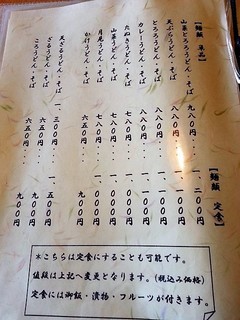 【麺類 単品】 【麺類 定食】
山菜とろろうどん・そば 九八〇円・・・一二〇〇円
天ぷらうどん・そば 八八〇円・・・一一〇〇円
とろろうどん・そば 八八〇円・・・一一〇〇円
カレーうどん・そば 八八〇円・・・一一〇〇円
たぬきうどん・そば 七八〇円・・・一〇〇〇円
山菜うどん・そば 七八〇円・・・一〇〇〇円
月見うどん・そば 七八〇円・・・一〇〇〇円
かけうどん・そば 六五〇円・・・九〇〇円
天ざるうどん・そば 一三〇〇円・・・一五〇〇円
ざるうどん・そば 六五〇円・・・九〇〇円
ころうどん・そば 六五〇円・・・九〇〇円
*こちらは定食にすることも可能です。
値段は上記へ変更となります。(税込み価格)
定食には御飯・漬物・フルーツが付きます。